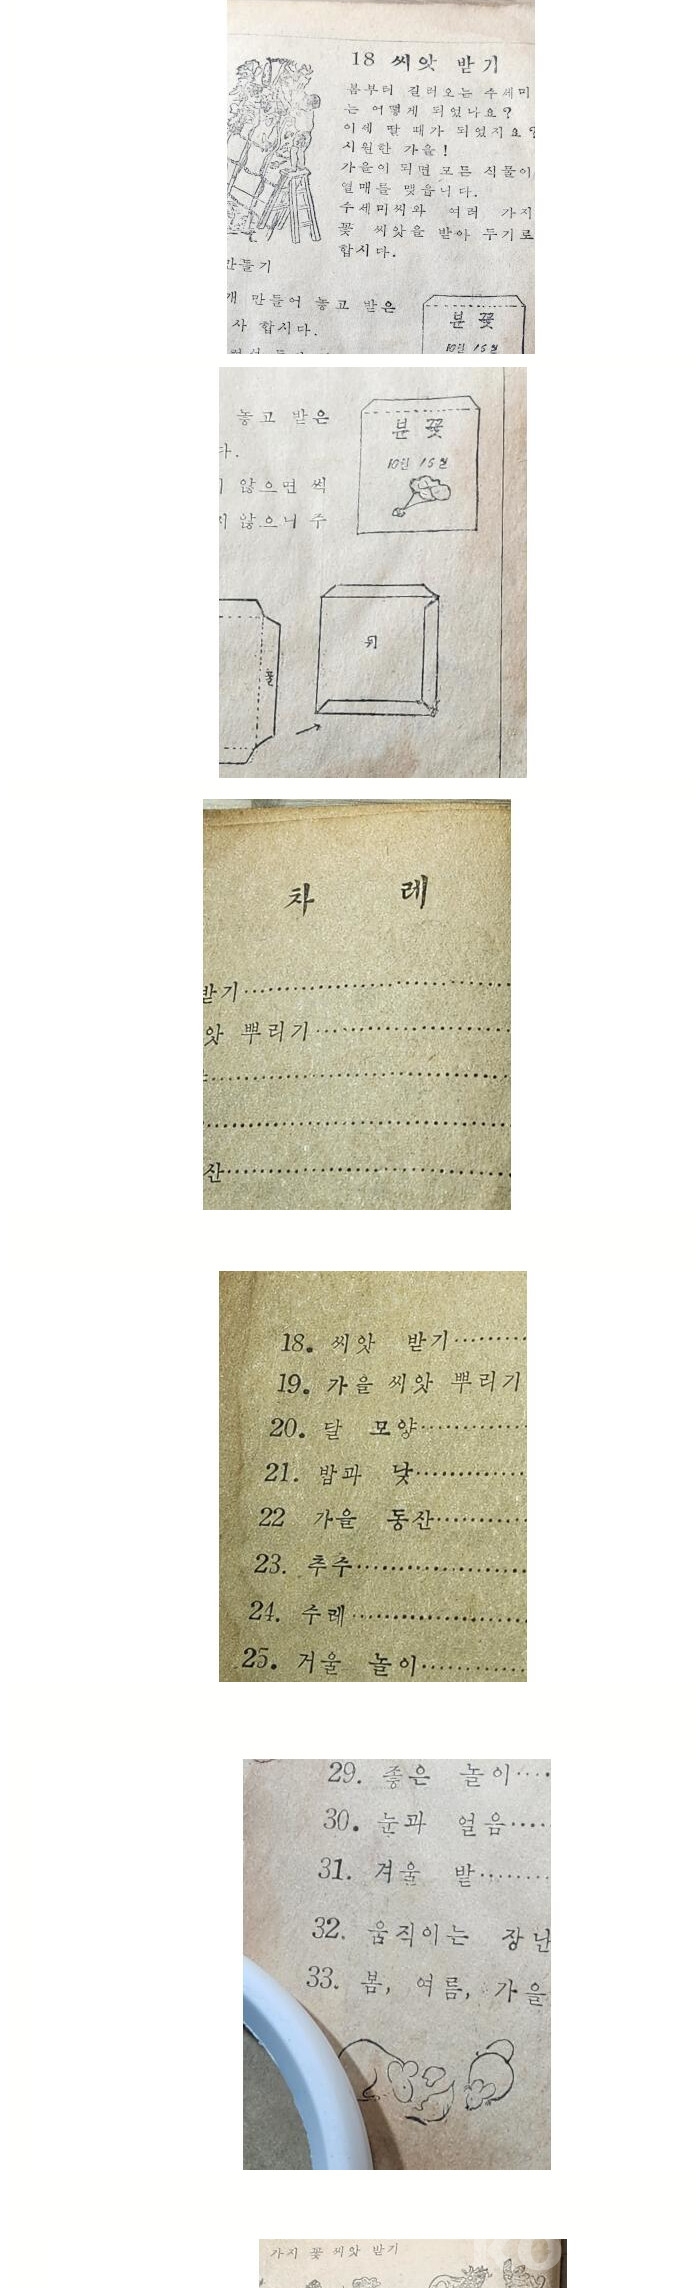 18 씨앗 받기
봄부터 길러오는 수세미
는 어떻게 되었나요?
이제 딸 때가 되었지요?
시원한 가을!
가을이 되면 모든 식물이
열매를 맺읍니다.
수세미씨와 여러 가지
꽃 씨앗을 받아 두기로
합시다.
만들기
개 만들어 놓고 받은
사 합시다.
분 꽃
10월 15일
놓고 받은
다.
않으면 썩
지 않으니 주
분 꽃
10월 15일
뒤
풀
차 례
받기
앗 뿌리기
산
18. 씨앗 받기
19. 가을 씨앗 뿌리기
20. 달 모양
21. 밤과 낮
22 가을 동산
23. 추수
24. 수레
25. 겨울 놀이
29. 좋은 놀이
30. 눈과 얼음
31. 겨울 밭
32. 움직이는 장난
33. 봄, 여름, 가을
가지 꽃 씨앗 받기